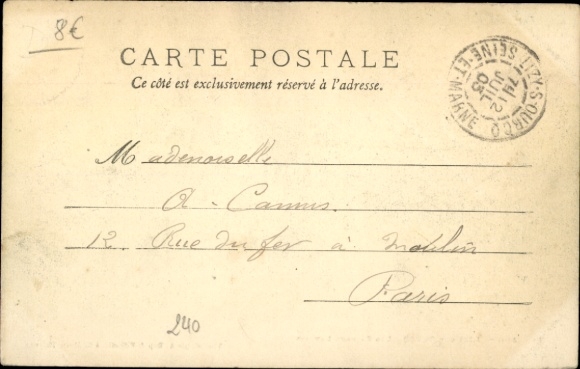 8€
CARTE POSTALE
Ce côté est exclusivement réservé à l'adresse.
LIZY-S-OURCQ
SEINE-ET-MARNE
12
JUIL
05
Mademoiselle
A. Camus.
12. Rue du fer à moulin
Paris
240